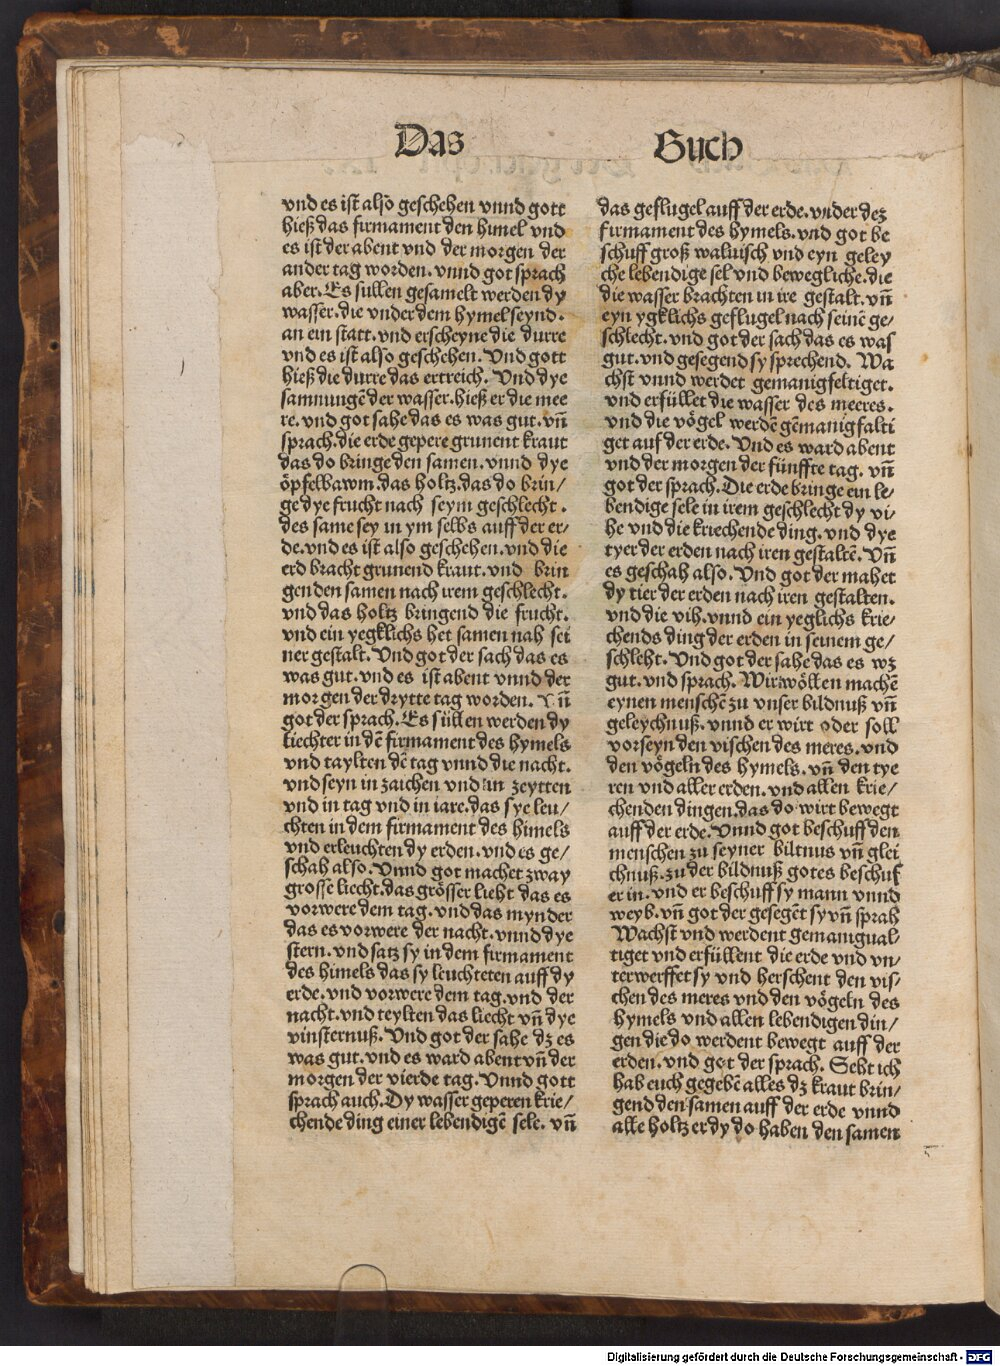 Das
Buch
vnd es ist also geschehen vnnd gott
hieß das firmament den himel vnd
es ist der abent vnd der morgen der
ander tag worden. vnnd got sprach
aber. Es süllen gesamelt werden dy
wasser. die vnder dem hymel seynd.
an ein statt. vnd erscheyne die durre
vnd es ist also geschehen. Vnd gott
hieß die durre das ertreich. Vnd dye
samnungē der wasser. hieß er die mee
re. vnd got sahe das es was gut. vn̄
sprach. die erde gepere grunent kraut
das do bringe den samen. vnnd dye
öpfelbawm. das holtz. das do brin/
ge dye frucht nach seym geschlecht.
des same sey in ym selbs auff der er/
de. vnd es ist also geschehen. vnd die
erd bracht grunend kraut. vnd brin
gen den samen nach irem geschlecht.
vnd das holtz bringend die frucht.
vnd ein yegklichs het samen nah sei
ner gestalt. Vnd got der sach das es
was gut. vnd es ist abent vnnd der
morgen der drytte tag worden. Vn̄
got der sprach. Es süllen werden dy
liechter in dē firmament des hymels
vnd taylten dē tag vnnd die nacht.
vnd seyn in zaichen vnd in zeytten
vnd in tag vnd in iare. das sye leu/
chten in dem firmament des himels
vnd erleuchten dy erden. vnd es ge/
schah also. Vnnd got machet zway
grosse liecht. das grösser lieht das es
vorwere dem tag. vnd das mynder
das es vorwere der nacht. vnnd dye
stern. vnd satz sy in dem firmament
des himels das sy leuchteten auff dy
erde. vnd vorwere dem tag. vnd der
nacht. vnd teylten das liecht vn̄ dye
vinsternuß. Vnd got der sahe dz es
was gut. vnd es ward abent vn̄ der
morgen der vierde tag. Vnnd gott
sprach auch. Dy wasser geperen krie/
chende ding einer lebendigē sele. vn̄
das geflugel auff der erde. vnder dez
firmament des hymels. vnd got be
schuff groß waluisch vnd eyn geley
che lebendige sel vnd bewegliche. die
die wasser brachten in ire gestalt. vn̄
eyn ygklichs geflugel nach seinē ge/
schlecht. vnd got der sach das es was
gut. vnd gesegend sy sprechend. Wa
chst vnnd werdet gemanigfeltiget.
vnd erfüllet die wasser des meeres.
vnd die vögel werdē gēmanigfalti
get auf der erde. Vnd es ward abent
vnd der morgen der fünffte tag. vn̄
got der sprach. Die erde bringe ein le/
bendige sele in irem geschlecht dy vi/
he vnd die kriechende ding. vnd dye
tyer der erden nach iren gestaltē. Vn̄
es geschah also. Vnd got der mahet
dy tier der erden nach iren gestalten.
vnd die vih. vnnd ein yeglichs krie/
chends ding der erden in seinem ge/
schleht. Vnd got der sahe das es wz
gut. vnd sprach. Wir wöllen machē
eynen menschē zu vnser bildnuß vn̄
geleychnuß. vnnd er wirt oder soll
vorseyn den vischen des meres. vnd
den vögeln des hymels. vn̄ den tye
ren vnd aller erden. vnd allen krie/
chenden dingen. das do wirt bewegt
auff der erde. Vnnd got beschuff den
menschen zu seyner biltnus vn̄ glei
chnuß. zu der bildnuß gotes beschuf
er in. vnd er beschuff sy mann vnnd
weyb. vn̄ got der gesegēt sy vn̄ sprah
Wachst vnd werdent gemanigual/
tiget vnd erfüllent die erde vnd vn/
terwerffet sy vnd herschent den vis/
chen des meres vnd den vögeln des
hymels vnd allen lebendigen din/
gen die do werdent bewegt auff der
erden. vnd got der sprach. Seht ich
hab euch gegebē alles dz kraut brin/
gend den samen auff der erde vnnd
alle holtzer dy do haben den samen
Digitalisierung gefördert durch die Deutsche Forschungsgemeinschaft - DFG